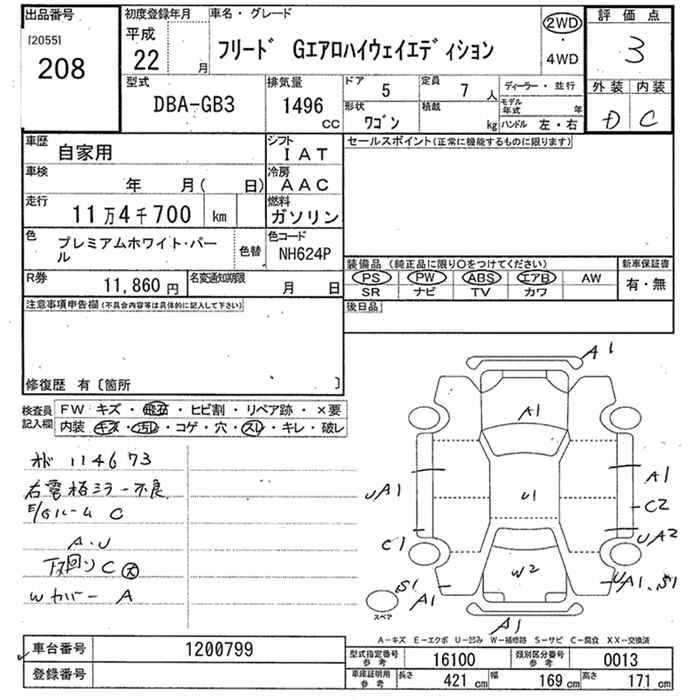 出品番号
[2055]
208
初度登録年月
平成
22 月
車名・グレード
フリード Gエアロハイウェイエディション
2WD
・
4WD
評価点
3
外装 内装
D C
型式
DBA-GB3
排気量
1496
cc
ドア 5
定員 7 人
形状 ワゴン
積載 kg
ディーラー・並行
モデル年式 年
ハンドル 左・右
車歴
自家用
シフト
IAT
車検
年 月( 日)
冷房
AAC
走行
11万4千700 km
燃料
ガソリン
色
プレミアムホワイト・パール
色替
色コード
NH624P
R券
11,860 円
名変通知期限
月 日
セールスポイント(正常に機能するものに限ります)
装備品 (純正品に限り○をつけてください)
PS PW ABS エアB AW
SR ナビ TV カワ
新車保証書
有・無
後日品
注意事項申告欄(不具合内容等は具体的に記入して下さい)
修復歴 有 〔箇所 〕
検査員記入欄
FW キズ・飛石・ヒビ割・リペア跡・×要
内装 キズ・汚レ・コゲ・穴・スレ・キレ・破レ
オド 114673
右電格ミラー不良
E/Gルーム C
A・U
下回り C
Wカバー A
A1
A1
UA1
A1
U1
C2
C1
UA2
W2
S1
A1
UA1.S1
A1
スペア
A―キズ E―エクボ U―凹み W―補修跡 S―サビ C―腐食 XX―交換済
車台番号
1200799
登録番号
型式指定番号
参考
16100
類別区分番号
参考
0013
車庫証明用
参考
長さ 421 cm
幅 169 cm
高さ 171 cm